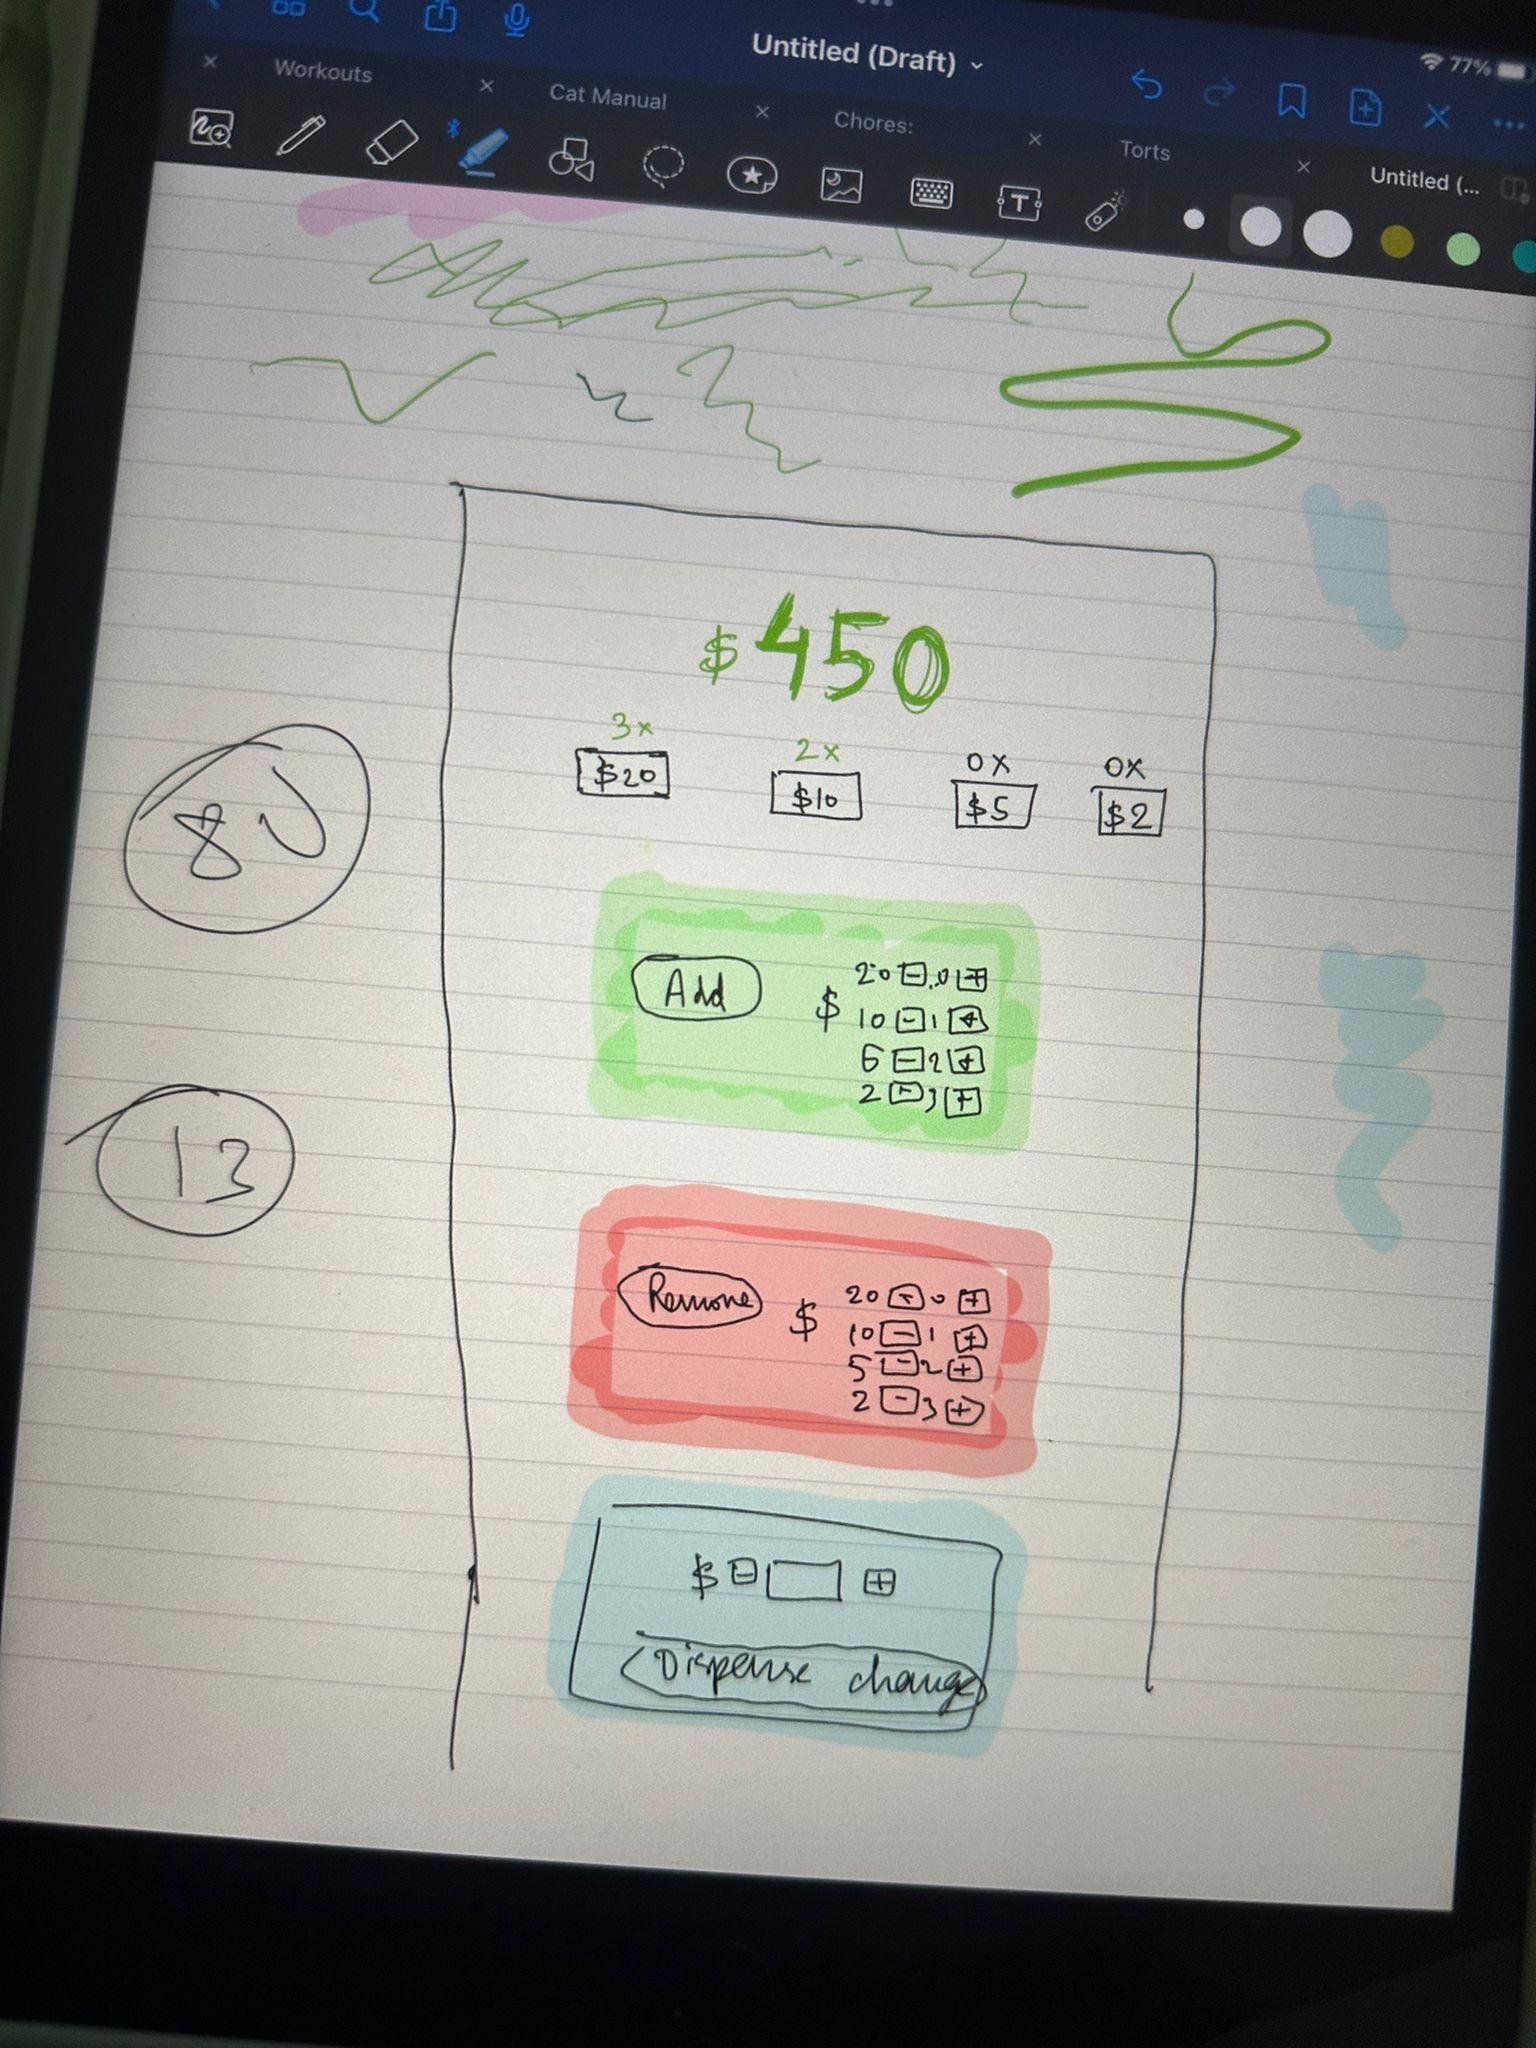 Untitled (Draft)
77%
Workouts
Cat Manual
Chores:
Torts
Untitled (...
$450
3x 2x 0x 0x
$20 $10 $5 $2
80
Add $
20 - 0 +
10 - 1 +
5 - 2 +
2 - 3 +
13
Remove $
20 - 0 +
10 - 1 +
5 - 2 +
2 - 3 +
$ - +
Dispense change